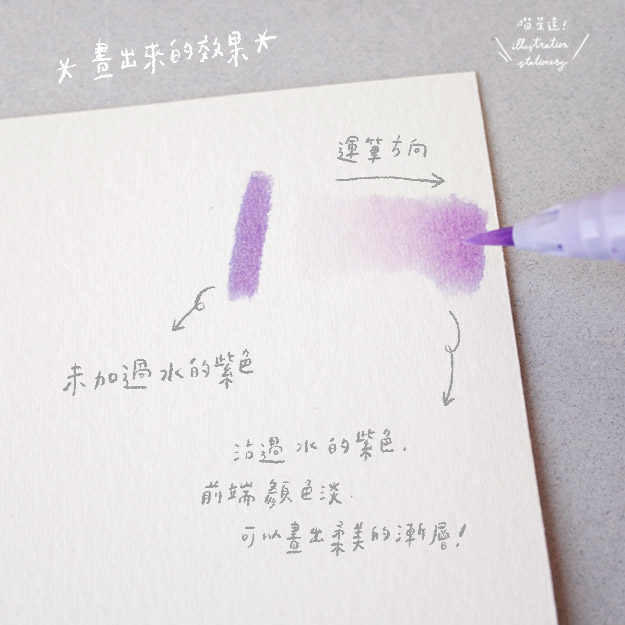 *畫出來的效果*
喵星達!
illustration
stationery
運筆方向
未加過水的紫色
沾過水的紫色.
前端顏色淡.
可以畫出柔美的漸層!